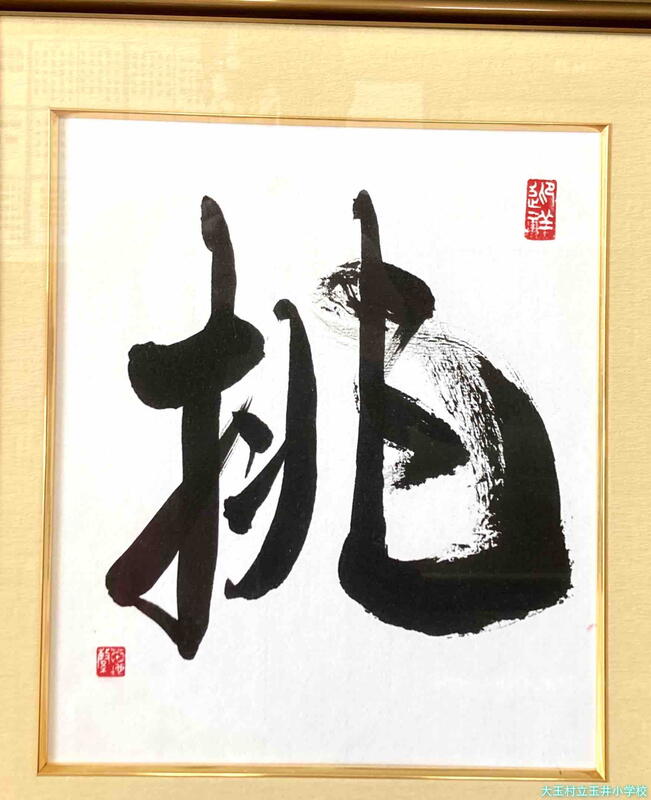 挑
大玉村立玉井小学校